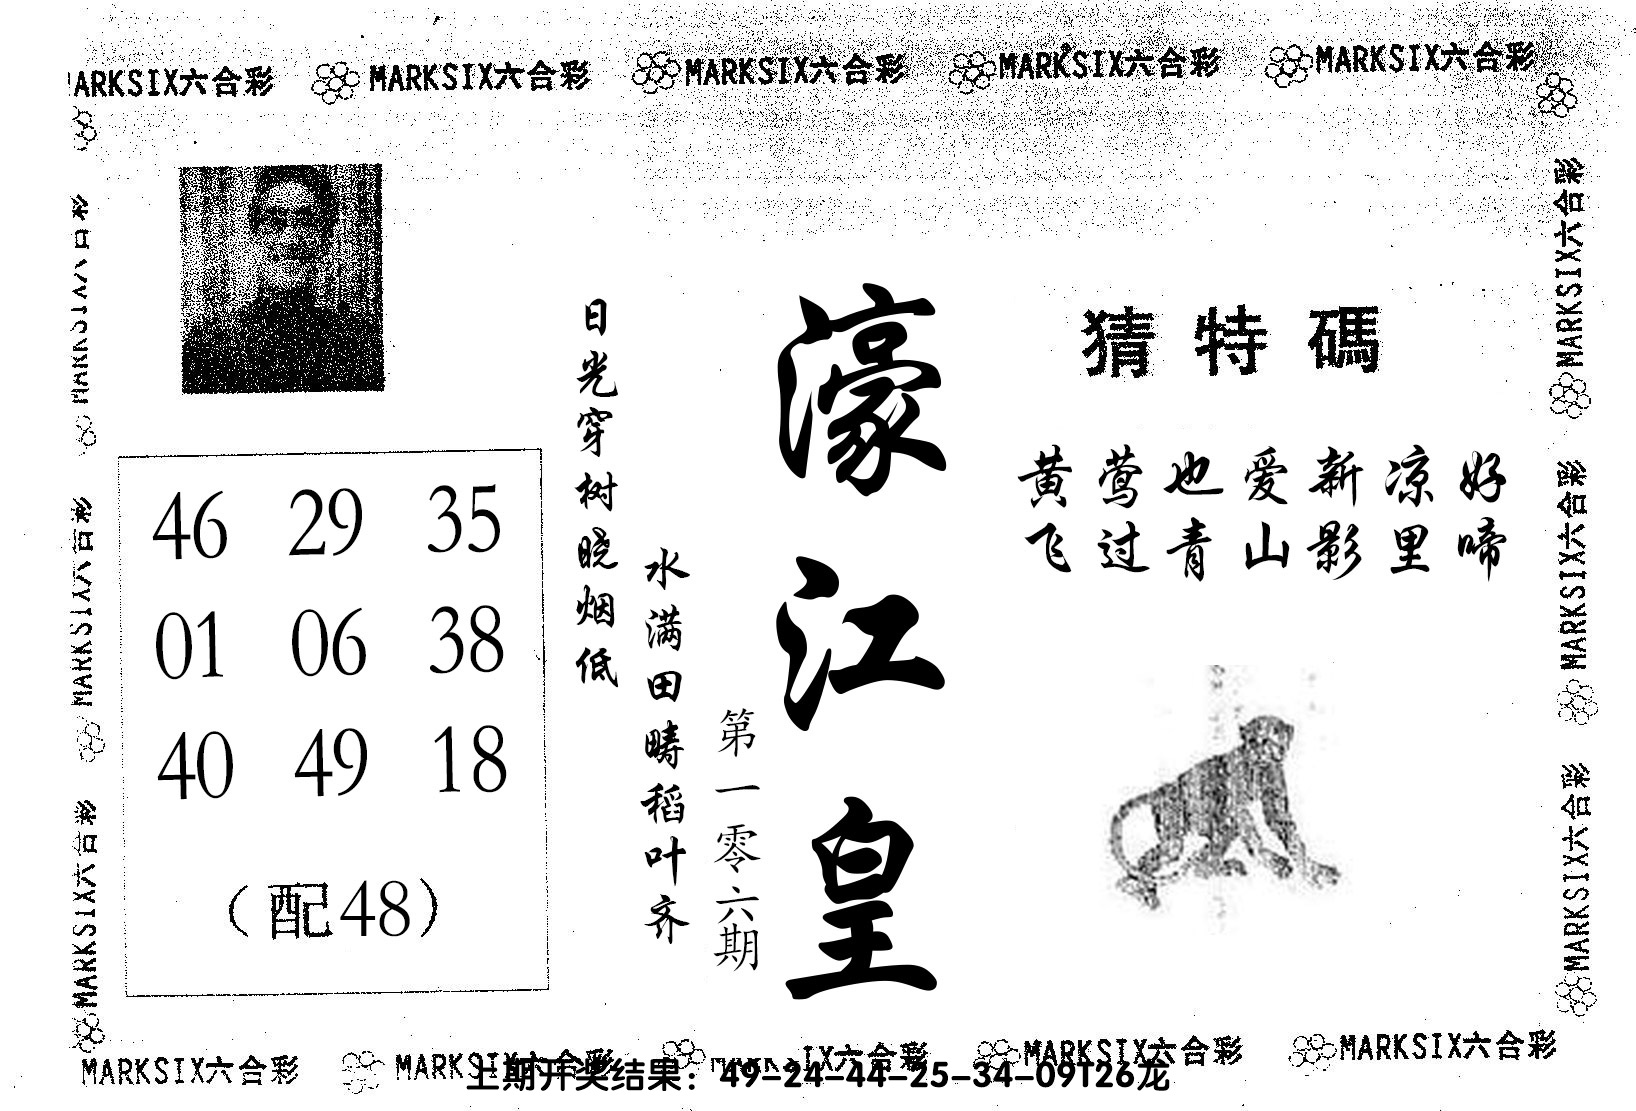 MARKSIX六合彩 MARKSIX六合彩 MARKSIX六合彩 MARKSIX六合彩 MARKSIX六合彩
猜特碼
黄莺也爱新凉好
飞过青山影里啼
濠江皇
第一零六期
日光穿树晓烟低
水满田畴稻叶齐
46 29 35
01 06 38
40 49 18
（配48）
MARKSIX六合彩
MARKSIX六合彩
MARKSIX六合彩
MARKSIX六合彩
MARKSIX六合彩
MARKSIX六合彩
MARKSIX六合彩 MARKSIX六合彩 IX六合彩 MARKSIX六合彩 MARKSIX六合彩
上期开奖结果：49-24-44-25-34-09T26龙